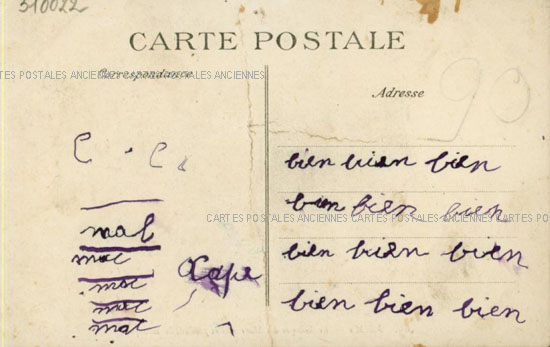 310022
CARTE POSTALE
CARTES POSTALES ANCIENNES CARTES POSTALES ANCIENNES CARTES POSTALES ANCIENNES
Correspondance
Adresse
90
C . C.
bien bien bien
bien bien bien
CARTES POSTALES ANCIENNES CARTES POSTALES ANCIENNES CARTES POSTALES
mal
bien bien bien
mal
mal
bien bien bien
mal
mal